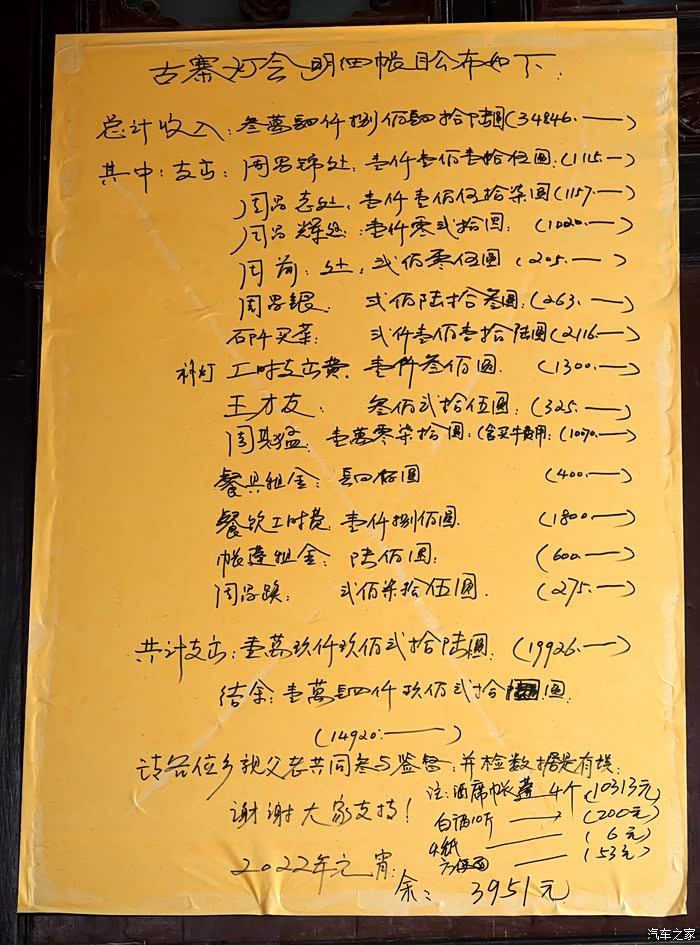 古寨灯会明细帐目公布如下:
总计收入:叁萬肆仟捌佰肆拾陆圆(34846.—)
其中:支出:周昌锦处:壹仟壹佰壹拾伍圆:(1115.—)
周昌志处:壹仟壹佰伍拾柒圆(1157.—)
周昌辉处:壹仟零弍拾圆:(1020.—)
周前:处:弍佰零伍圆(205.—)
周昌银:弍佰陆拾叁圆:(263.—)
买菜:弍仟壹佰壹拾陆圆(2116.—)
补灯工时支出费:壹仟叁佰圆:(1300.—)
王才友:叁佰弍拾伍圆:(325.—)
周其猛:壹萬零柒拾圆:(含买牛费用:(1070.—)
餐具租金:肆佰圆(400.—)
餐饮工时费:壹仟捌佰圆.(1800.—)
帐篷租金:陆佰圆:(600.—)
周昌:弍佰柒拾伍圆.(275.—)
共计支出:壹萬玖仟玖佰弍拾陆圆:(19926.—)
结余:壹萬肆仟玖佰弍拾圆:
(14920.—)
请各位乡亲父老共同参与监督:并检数据是有误:
谢谢大家支持!
注:酒席帐篷4个(10313元)
白酒10斤—(200元)
纸—(6元)
—(53元)
2022年元宵:
余:3951元
汽车之家